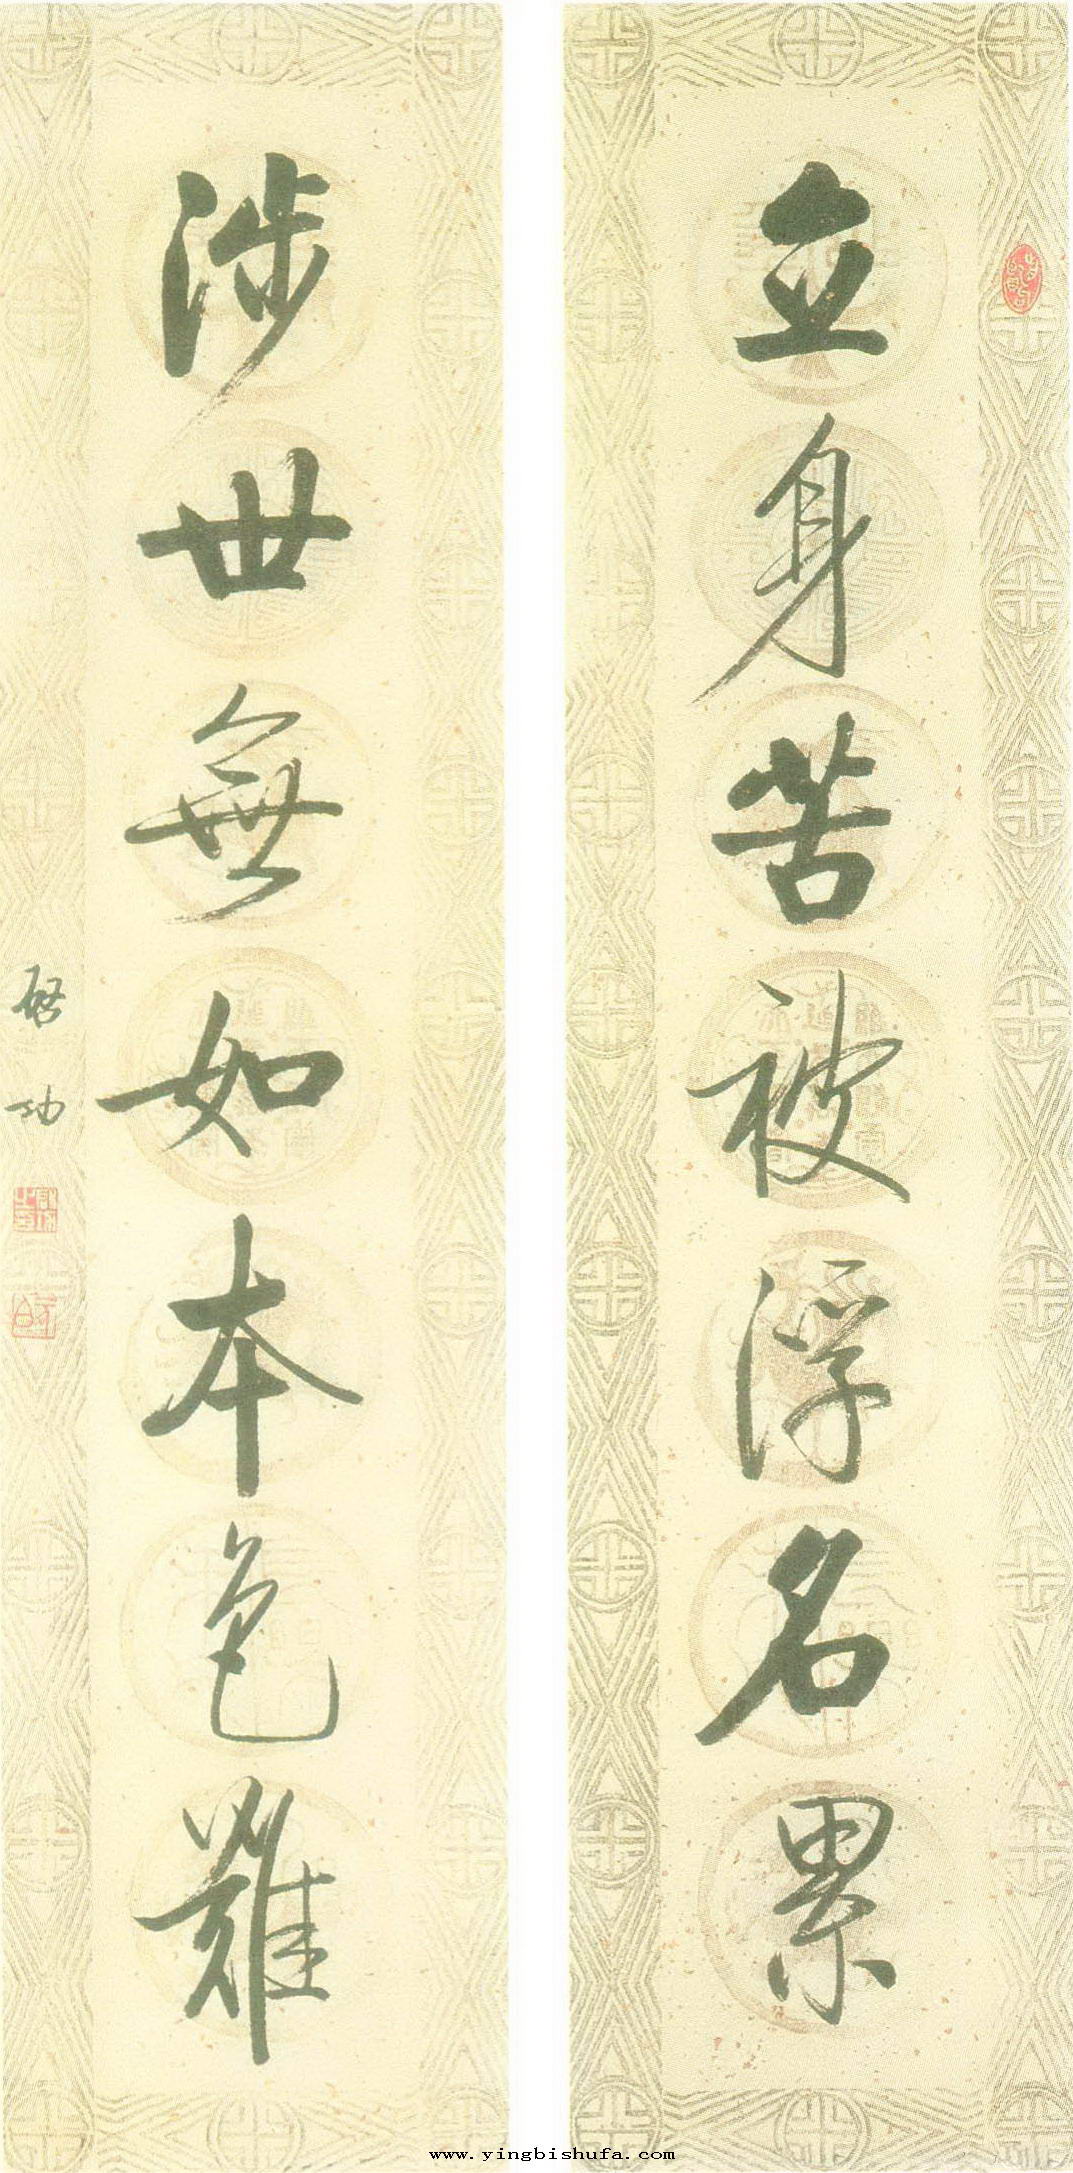 立身苦被浮名累
涉世無如本色難
啓功
www.yingbishufa.com